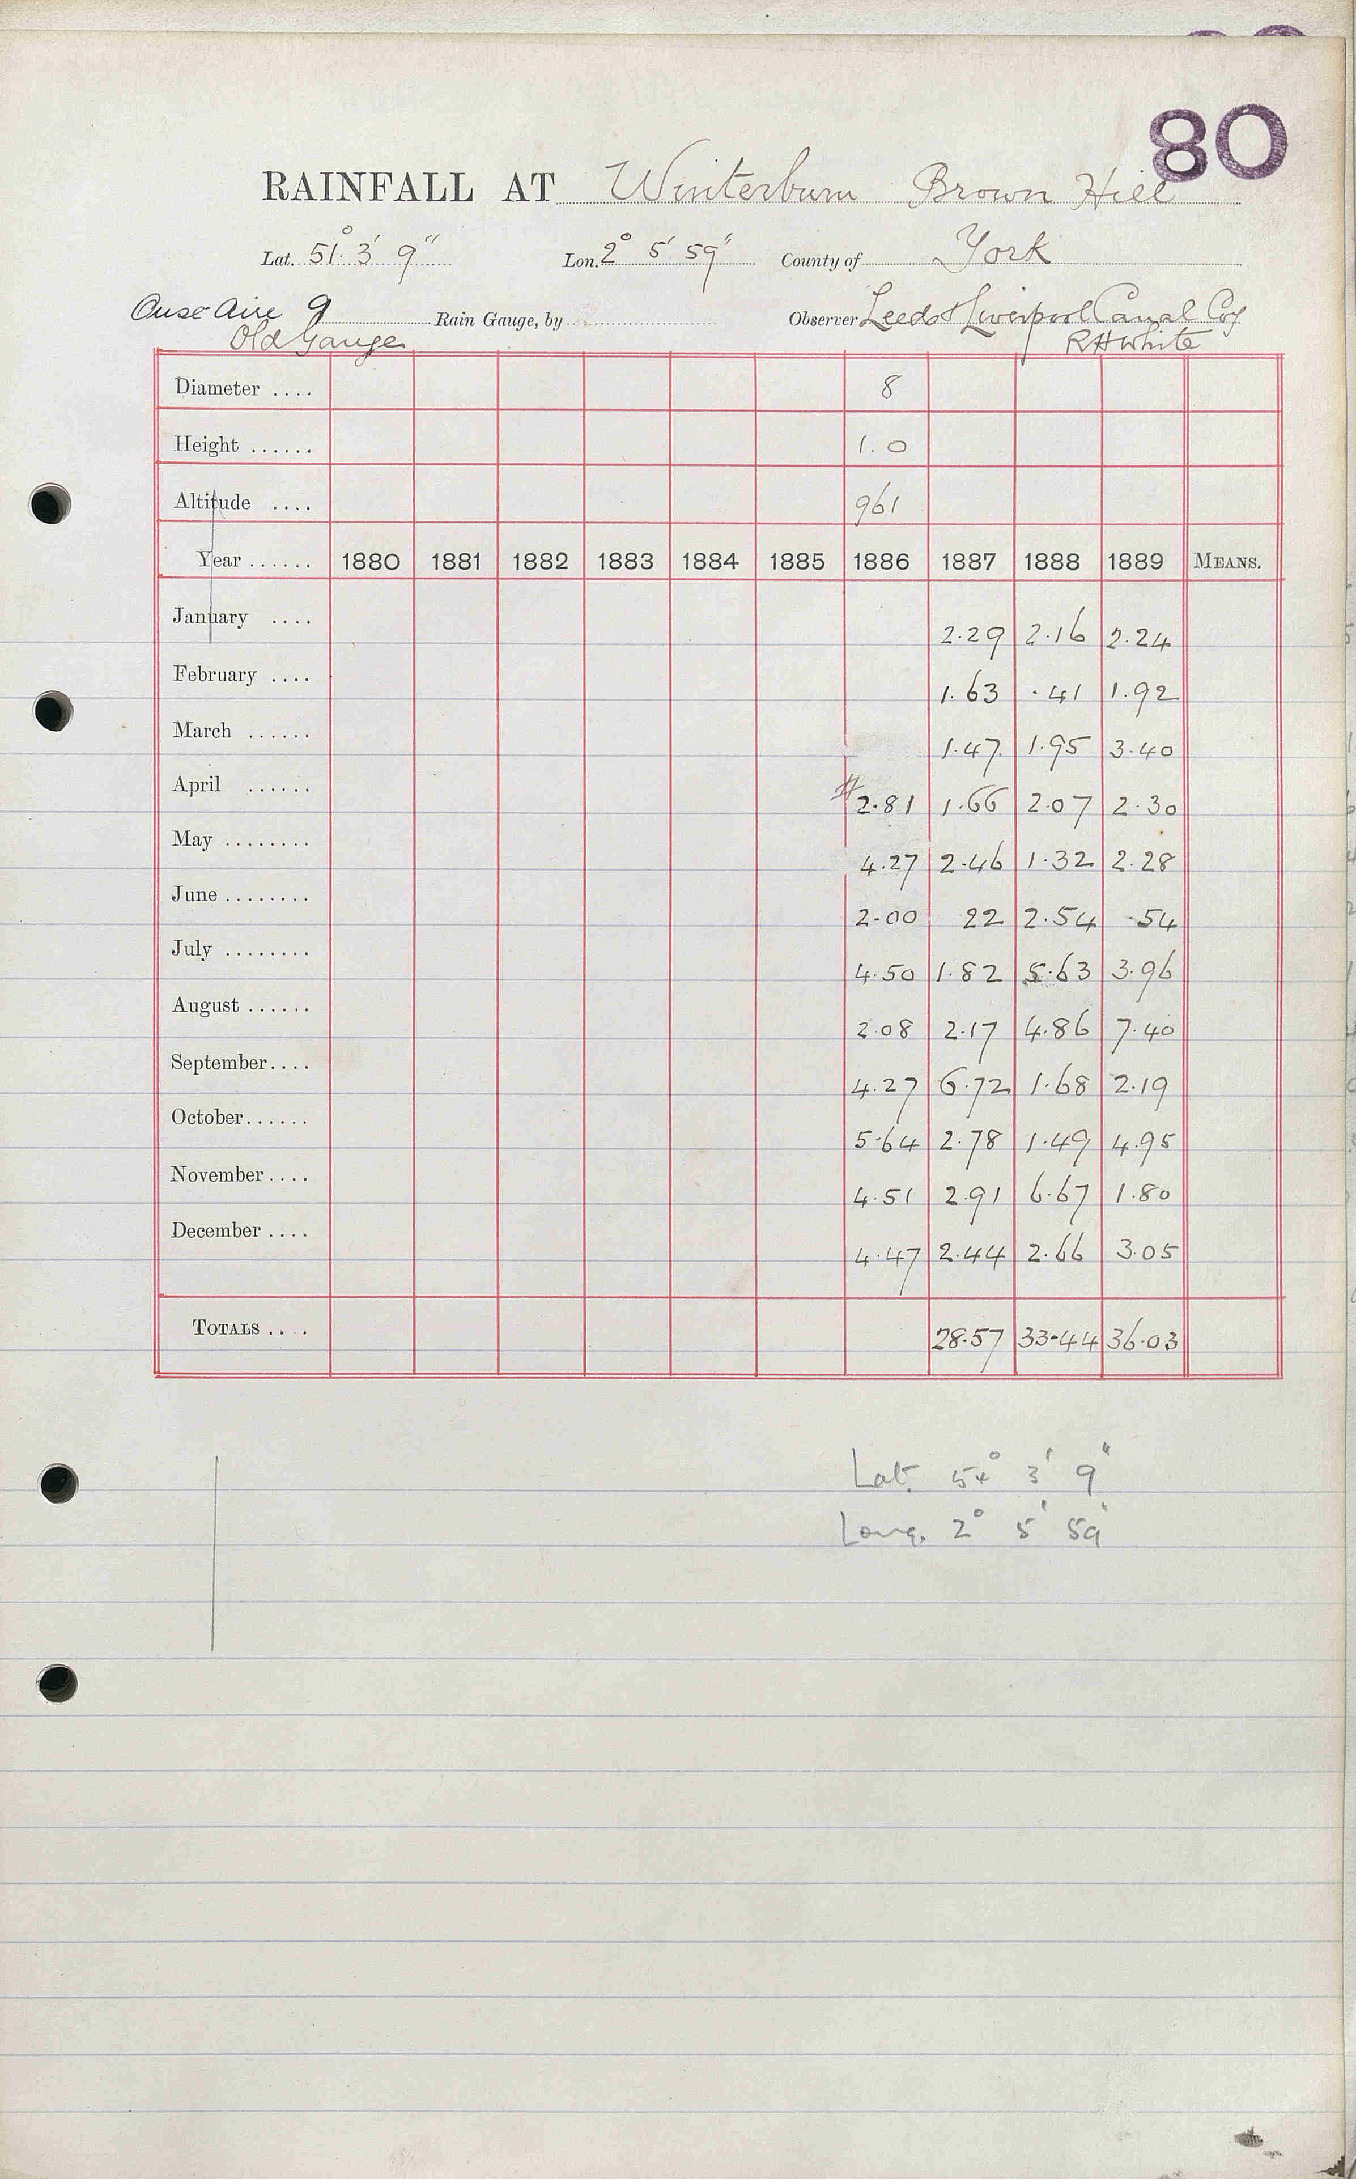 80
RAINFALL AT Winterburn Brown Hill
Lat. 51° 3' 9" Lon. 2° 5' 59" County of York
Ouse Aire 9 Rain Gauge, by Observer Leeds & Liverpool Canal Coy
Old Gauge R H White
Diameter .... 8
Height ...... 1.0
Altitude .... 961
Year ...... 1880 1881 1882 1883 1884 1885 1886 1887 1888 1889 MEANS.
January .... 2.29 2.16 2.24
February .... 1.63 .41 1.92
March ...... 1.47 1.95 3.40
April ...... #2.81 1.66 2.07 2.30
May ........ 4.27 2.46 1.32 2.28
June ........ 2.00 22 2.54 .54
July ........ 4.50 1.82 5.63 3.96
August ...... 2.08 2.17 4.86 7.40
September.... 4.27 6.72 1.68 2.19
October...... 5.64 2.78 1.49 4.95
November.... 4.51 2.91 6.67 1.80
December .... 4.47 2.44 2.66 3.05
TOTALS .... 28.57 33.44 36.03
Lat. 54° 3' 9"
Long. 2° 5' 59"